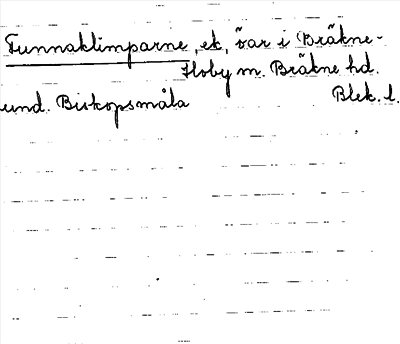 Tunnaklimparne, ek, öar i Bräkne-
Hoby sn. Bräkne hd.
und. Biskopsmåla Blek. l.